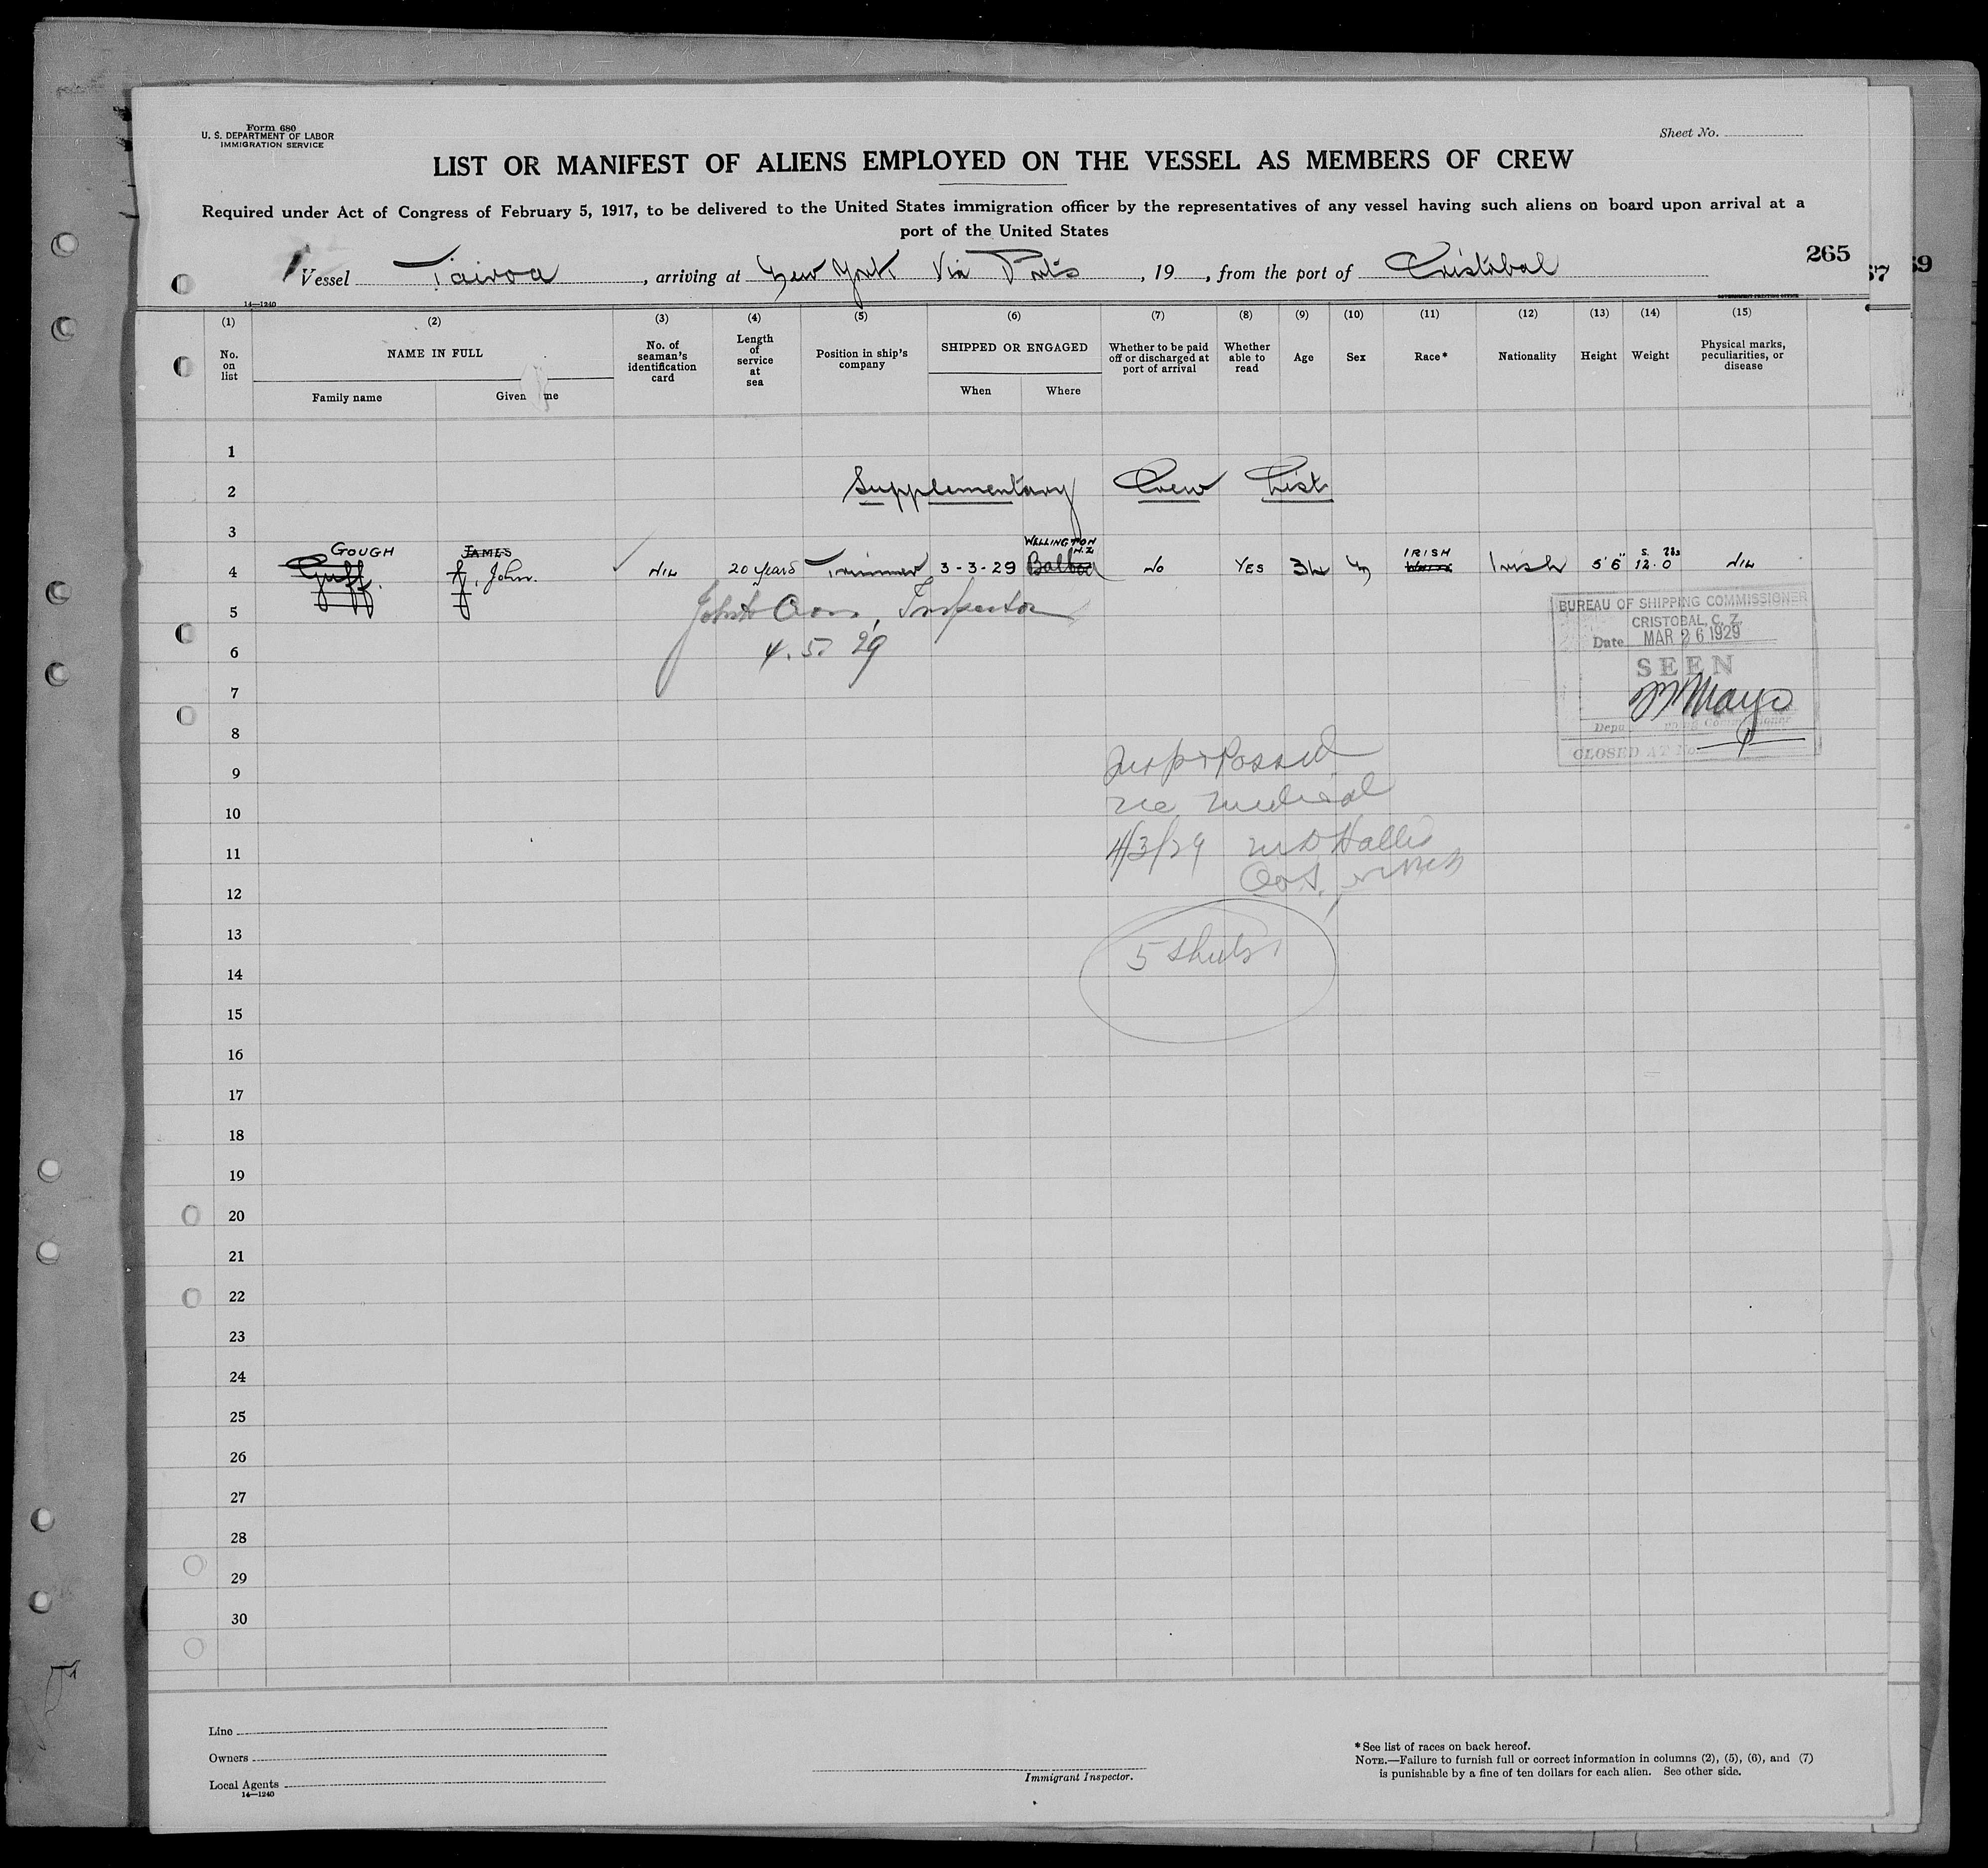 Form 680
U. S. DEPARTMENT OF LABOR
IMMIGRATION SERVICE
Sheet No.
LIST OR MANIFEST OF ALIENS EMPLOYED ON THE VESSEL AS MEMBERS OF CREW
Required under Act of Congress of February 5, 1917, to be delivered to the United States immigration officer by the representatives of any vessel having such aliens on board upon arrival at a
port of the United States
265
Vessel Tairoa, arriving at New York Via Ports, 19, from the port of Cristobal
57 59
14—1240
GOVERNMENT PRINTING OFFICE
(1) (2) (3) (4) (5) (6) (7) (8) (9) (10) (11) (12) (13) (14) (15)
No. on list
NAME IN FULL
Family name
Given me
No. of seaman's identification card
Length of service at sea
Position in ship's company
SHIPPED OR ENGAGED
When
Where
Whether to be paid off or discharged at port of arrival
Whether able to read
Age
Sex
Race*
Nationality
Height
Weight
Physical marks, peculiarities, or disease
1
2 Supplementary Crew List
3
GOUGH JAMES WELLINGTON N.Z. IRISH S. lbs
4 Guff. John. NIL 20 years Trimmer 3-3-29 Balboa No YES 34 Irish 5' 6" 12. 0 NIL
5 Inspector
6 4. 5. 29
BUREAU OF SHIPPING COMMISSIONER
CRISTOBAL, C. Z.
Date MAR 26 1929
SEEN
Mayo
Commissioner
CLOSED AT No.
7
8
9 Insp & Passed
10 no medical
11 4/3/29
12
13 5 sheets
14
15
16
17
18
19
20
21
22
23
24
25
26
27
28
29
30
Line
Owners
Local Agents
14—1240
Immigrant Inspector.
* See list of races on back hereof.
NOTE.—Failure to furnish full or correct information in columns (2), (5), (6), and (7)
is punishable by a fine of ten dollars for each alien. See other side.